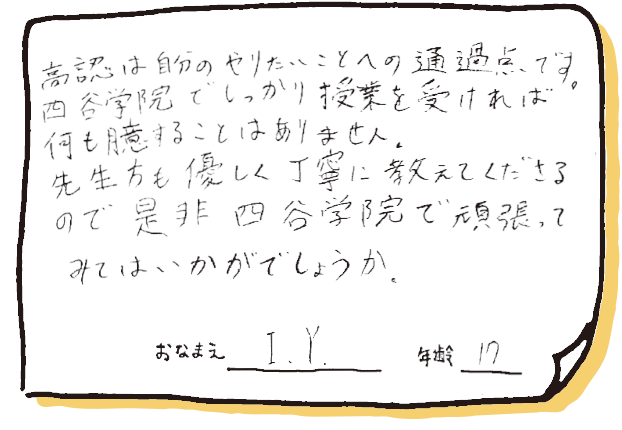 高認は自分のやりたいことへの通過点です。
四谷学院でしっかり授業を受ければ
何も臆することはありません。
先生方も優しく丁寧に教えてくださる
ので是非四谷学院で頑張って
みてはいかがでしょうか。
おなまえ I.Y. 年齢 17